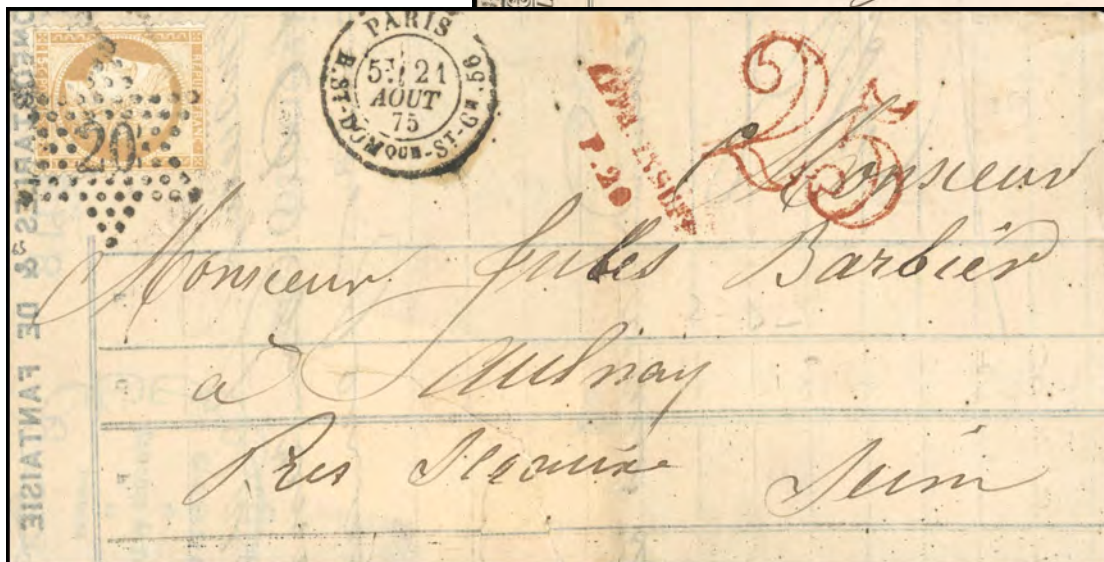 PARIS
5E 21
AOUT
75
R. ST-DOMQUE-ST-GN. 56
20
AFFR. INSUFF.
P. 20
25
Monsieur
Monsieur Jules Barbier
à Aulnay
Près Sceaux Seine
& DE FANTAISIE